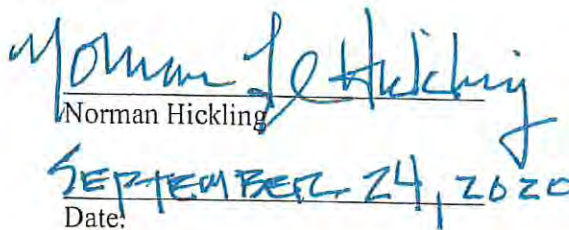 Norman L Hickling
Norman Hickling
SEPTEMBER 24, 2020
Date: